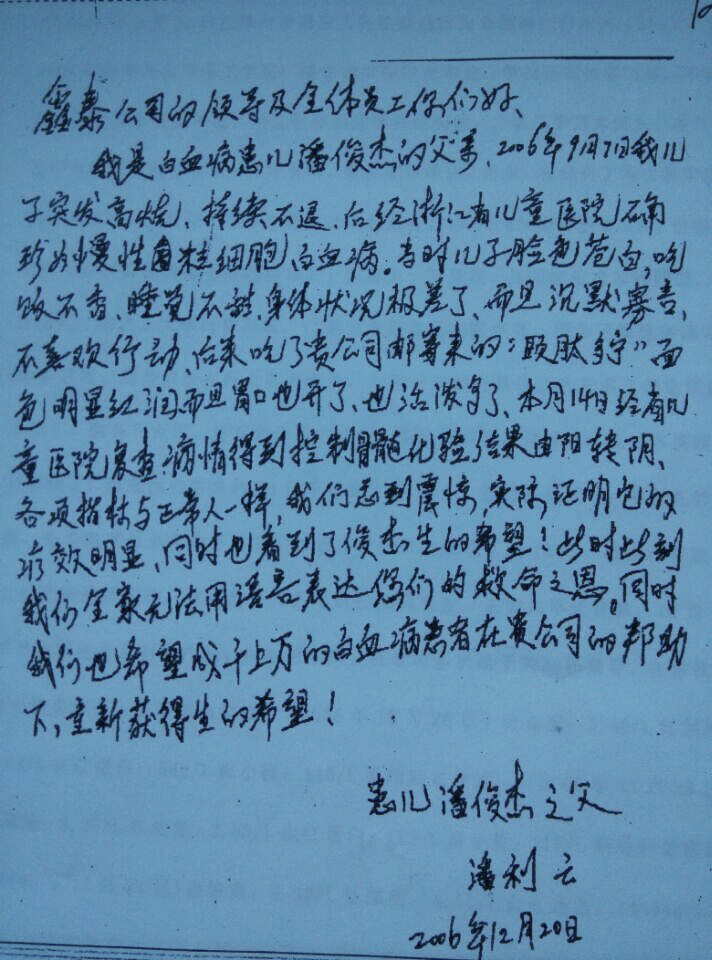 鑫泰公司的领导及全体员工你们好、
我是白血病患儿潘俊杰的父亲、2006年9月7日我儿
子突发高烧、持续不退、后经浙江省儿童医院确
珍为慢性粒细胞白血病。当时儿子脸色苍白,吃
饭不香、睡觉不甜、身体状况极差了、而且沉默寡言、
不喜欢行动、后来吃了贵公司邮寄来的“颐肽多宁”面
色明显红润而且胃口也开了、也活泼多了、本月14日经省儿
童医院复查病情得到控制骨髓化验结果由阳转阴、
各项指标与正常人一样,我们感到震惊,实际证明它的
疗效明显、同时也看到了俊杰生的希望!此时此刻
我们全家无法用语言表达您们的救命之恩。同时
我们也希望成千上万的白血病患者在贵公司的帮助
下,重新获得生的希望!
患儿潘俊杰之父
潘利云
2006年12月20日